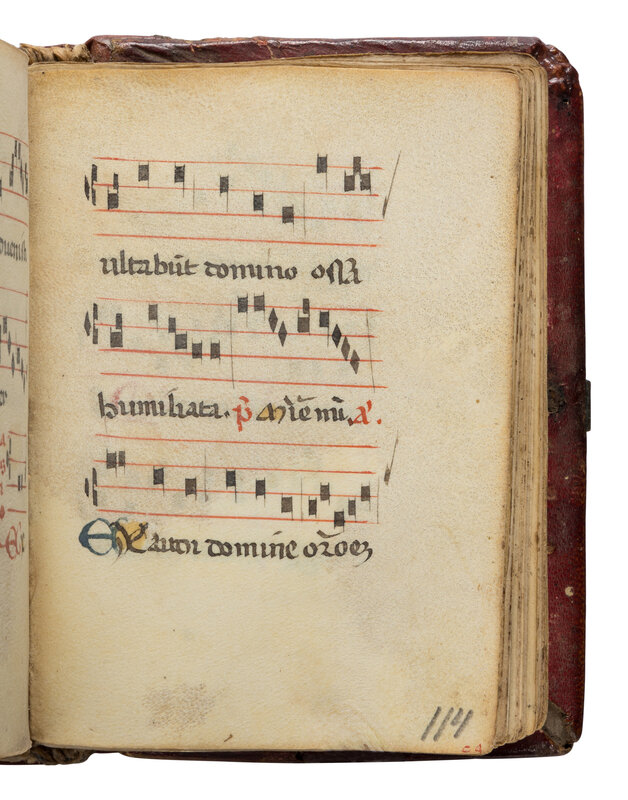 ultabūt domino ossa
humiliata. p̄ Mīē mī. a'.
Exaudi domine or̄oeꝫ
114
c 4